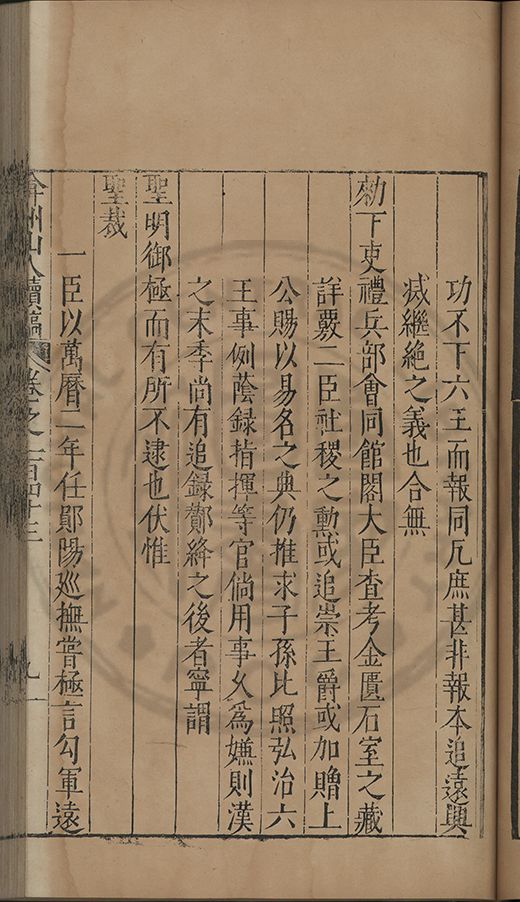 功不下六王而報同凡庶甚非報本追遠興
滅繼絶之義也合無
勑下吏禮兵部會同館閣大臣査考金匱石室之藏
詳覈二臣社稷之勳或追崇王爵或加贈上
公賜以易名之典仍推求子孫比照弘治六
王事例蔭録指揮等官倘用事乆爲嫌則漢
之末季尚有追録酇絳之後者寧謂
聖明御極而有所不逮也伏惟
聖裁
一臣以萬曆二年任鄖陽廵撫嘗極言勾軍遠
弇州山人續稿 卷之一百四十三 九